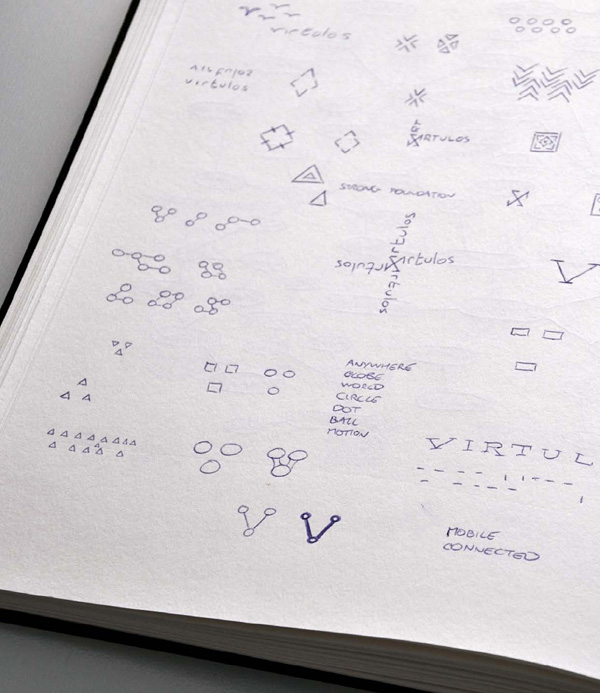 virtulos
virtulos
ARTULOS
STRONG FOUNDATION
virtulos
virtulos
virtulos
virtulos
ANYWHERE
GLOBE
WORLD
CIRCLE
DOT
BALL
MOTION
VIRTUL
MOBILE
CONNECTED